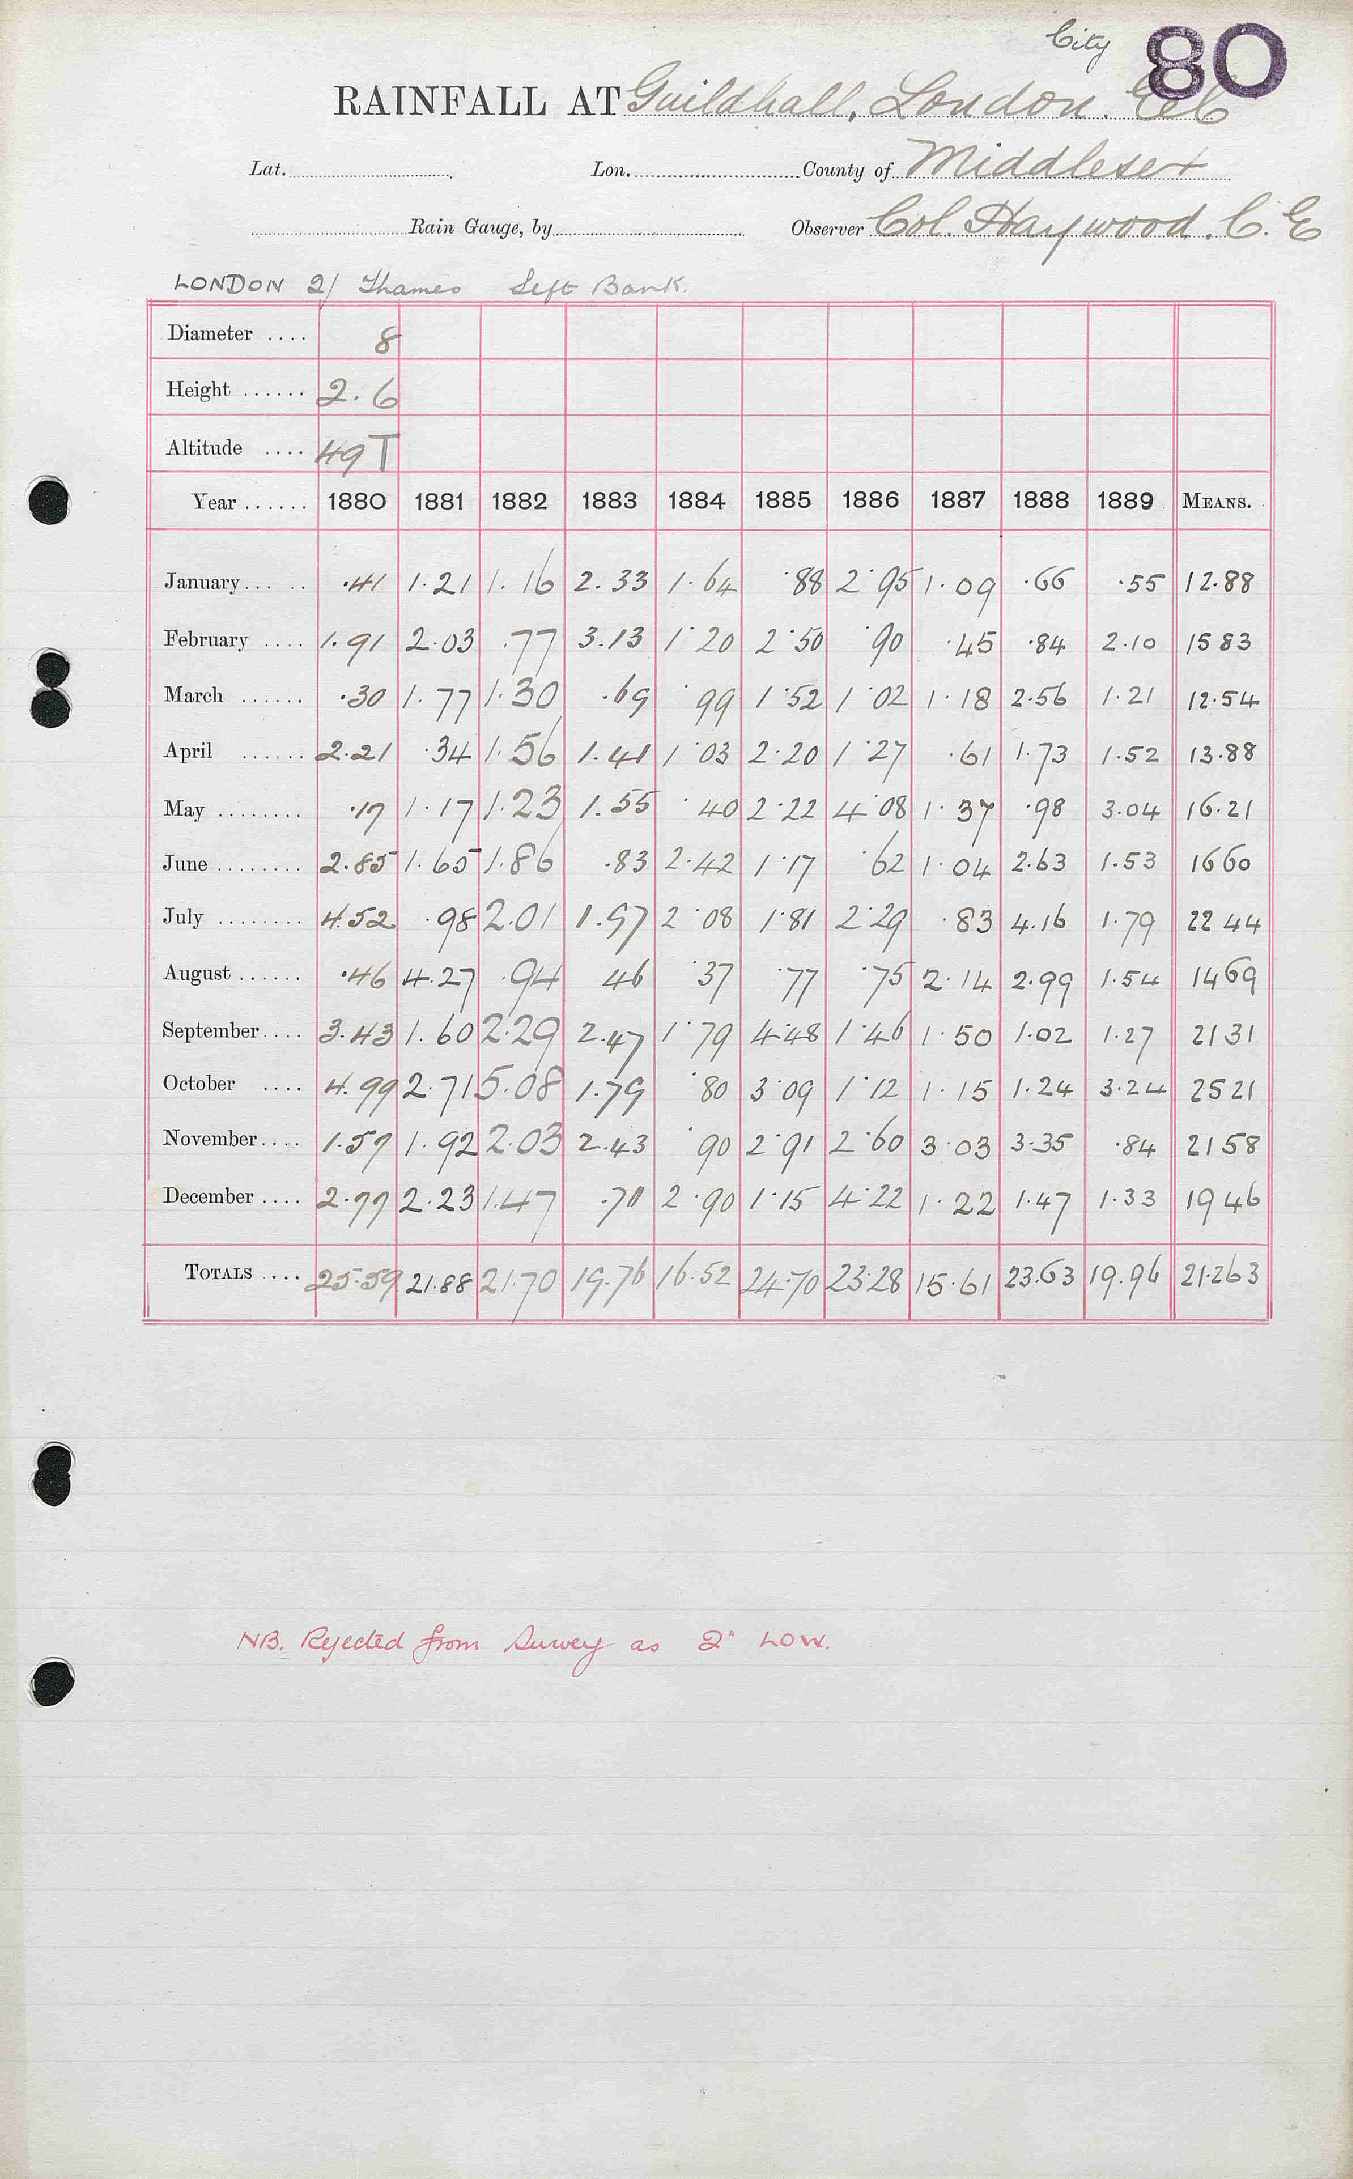 City 80
RAINFALL AT Guildhall, London. E.C
Lat. Lon. County of Middlesex
Rain Gauge, by Observer Col. Haywood. C. E
LONDON 2/ Thames Left Bank.
Diameter .... 8
Height ...... 2.6
Altitude .... 49 T
Year ...... 1880 1881 1882 1883 1884 1885 1886 1887 1888 1889 MEANS.
January ...... .41 1.21 1.16 2.33 1.64 .88 2.95 1.09 .66 .55 12.88
February .... 1.91 2.03 .77 3.13 1.20 2.50 .90 .45 .84 2.10 15 83
March ...... .30 1.77 1.30 .69 .99 1.52 1.02 1.18 2.56 1.21 12.54
April ...... 2.21 .34 1.56 1.41 1.03 2.20 1.27 .61 1.73 1.52 13.88
May ........ .17 1.17 1.23 1.55 .40 2.22 4.08 1.37 .98 3.04 16.21
June ........ 2.85 1.65 1.86 .83 2.42 1.17 .62 1.04 2.63 1.53 16 60
July ........ 4.52 .98 2.01 1.97 2.08 1.81 2.29 .83 4.16 1.79 22 44
August ...... .46 4.27 .94 46 .37 .77 .75 2.14 2.99 1.54 14 69
September .... 3.43 1.60 2.29 2.47 1.79 4.48 1.46 1.50 1.02 1.27 21 31
October .... 4.99 2.71 5.08 1.79 .80 3.09 1.12 1.15 1.24 3.24 25 21
November .... 1.57 1.92 2.03 2.43 .90 2.91 2.60 3.03 3.35 .84 21 58
December .... 2.77 2.23 1.47 .70 2.90 1.15 4.22 1.22 1.47 1.33 19 46
TOTALS .... 25.59 21.88 21.70 19.76 16.52 24.70 23.28 15.61 23.63 19.96 21.263
NB. Rejected from Survey as 2" LOW.